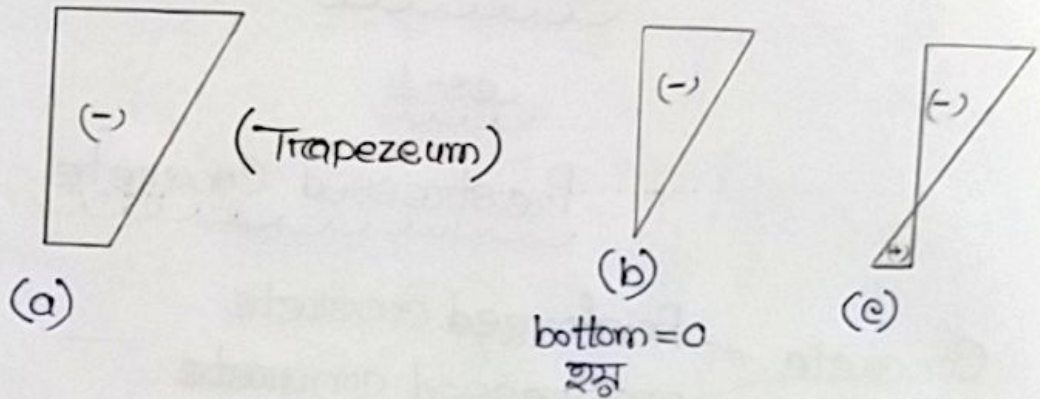 (-)
(Trapezeum)
(-)
(-)
(+)
(a)
(b)
(c)
bottom=0
হয়